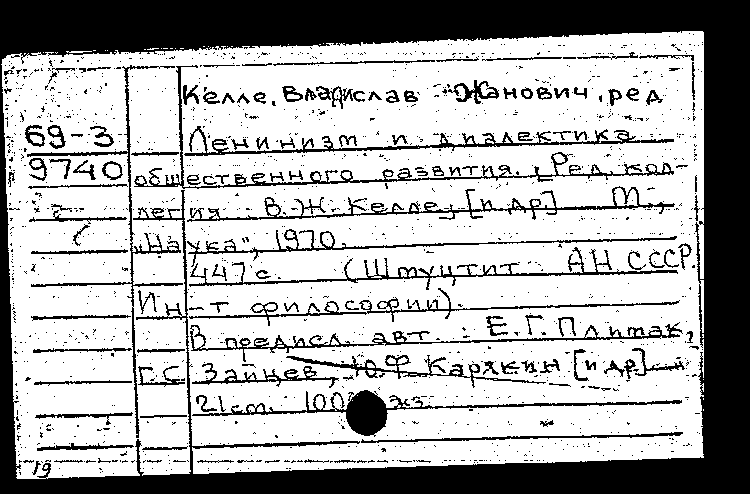 Келле, Владислав Жанович, ред
69-3
9740
Ленинизм и диалектика
общественного развития. [Ред. кол-
легия: В.Ж. Келле, [и др] М.,
„Наука", 1970.
447 с. (Штуцтит: АН СССР.
Ин-т философии).
В предисл. авт.: Е.Г. Плимак,
Г.С. Зайцев, Ю.Ф. Карякин [и др]
21 см. экз.
19